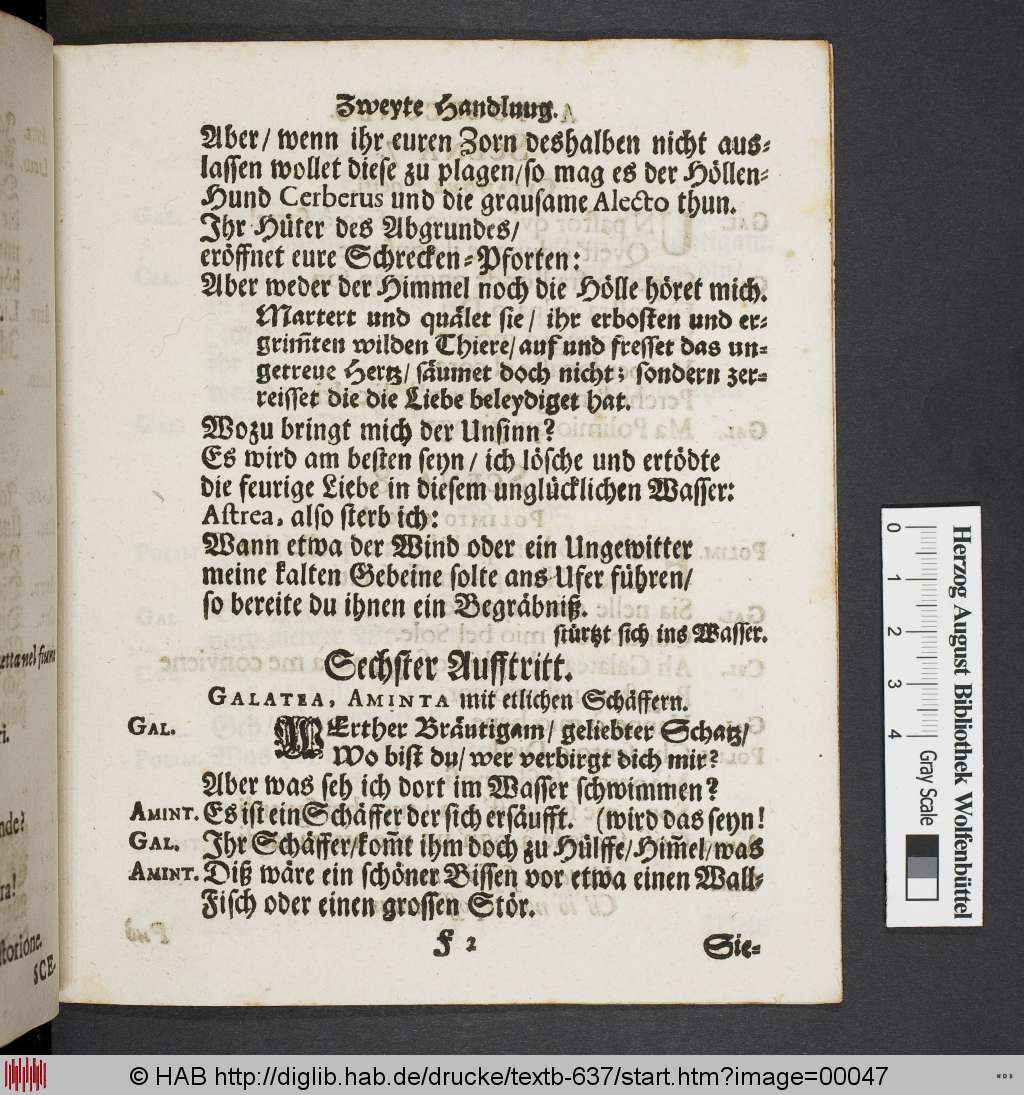 Zweyte Handlnng.
Aber/ wenn ihr euren Zorn deshalben nicht aus-
lassen wollet diese zu plagen/so mag es der Höllen-
Hund Cerberus und die grausame Alecto thun.
Ihr Hüter des Abgrundes/
eröffnet eure Schrecken-Pforten:
Aber weder der Himmel noch die Hölle höret mich.
Martert und quälet sie/ ihr erbosten und er-
grim̃ten wilden Thiere/ auf und fresset das un-
getreue Hertz/ säumet doch nicht; sondern zer-
reisset die die Liebe beleydiget hat.
Wozu bringt mich der Unsinn?
Es wird am besten seyn/ ich lösche und ertödte
die feurige Liebe in diesem unglücklichen Wasser:
Astrea, also sterb ich:
Wann etwa der Wind oder ein Ungewitter
meine kalten Gebeine solte ans Ufer führen/
so bereite du ihnen ein Begräbniß.
stürtzt sich ins Wasser.
Sechster Aufftritt.
GALATEA, AMINTA mit etlichen Schäffern.
GAL. WErther Bräutigam/ geliebter Schatz/
Wo bist du/ wer verbirgt dich mir?
Aber was seh ich dort im Wasser schwimmen?
AMINT. Es ist ein Schäffer der sich ersäufft. (wird das seyn!
GAL. Ihr Schäffer/kom̃t ihm doch zu Hülffe/Him̃el/was
AMINT. Diß wäre ein schöner Bissen vor etwa einen Wall-
Fisch oder einen grossen Stör.
F 2 Sie-
etta nel fiume
ri.
nde?
ra!
storione.
SCE-
0 1 2 3 4
Herzog August Bibliothek Wolfenbüttel
Gray Scale
© HAB http://diglib.hab.de/drucke/textb-637/start.htm?image=00047